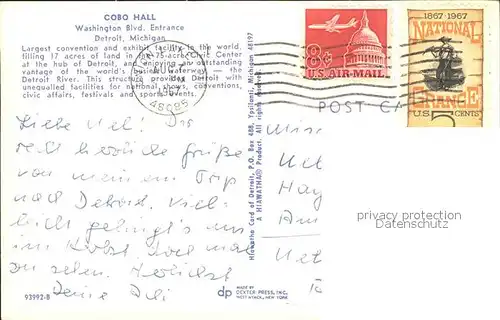 COBO HALL
Washington Blvd. Entrance
Detroit, Michigan
Largest convention and exhibit facility in the world,
tilling 17 acres of land in the 75-acre Civic Center
at the hub of Detroit, and enjoying an outstanding
vantage of the world's busiest waterway — the
Detroit River. This structure provides Detroit with
unequalled facilities for national shows, conventions,
civic affairs, festivals and sports events.
8¢
U.S. AIR MAIL
1867-1967
NATIONAL
GRANGE
U.S. 5 CENTS
1967
48095
POST CA
Liebe
recht herzliche Grüße
von meinem Trip
nach Detroit. Viel-
leicht gelingt's uns
im Herbst, doch mal
zu sehen. Herzlichst
Deine
Hiawatha Card of Detroit, P.O. Box 488, Ypsilanti, Michigan 48197
A HIAWATHA® Product. All rights reserved.
privacy protection
Datenschutz
93992-B
dp
MADE BY
DEXTER PRESS, INC.
WEST NYACK, NEW YORK